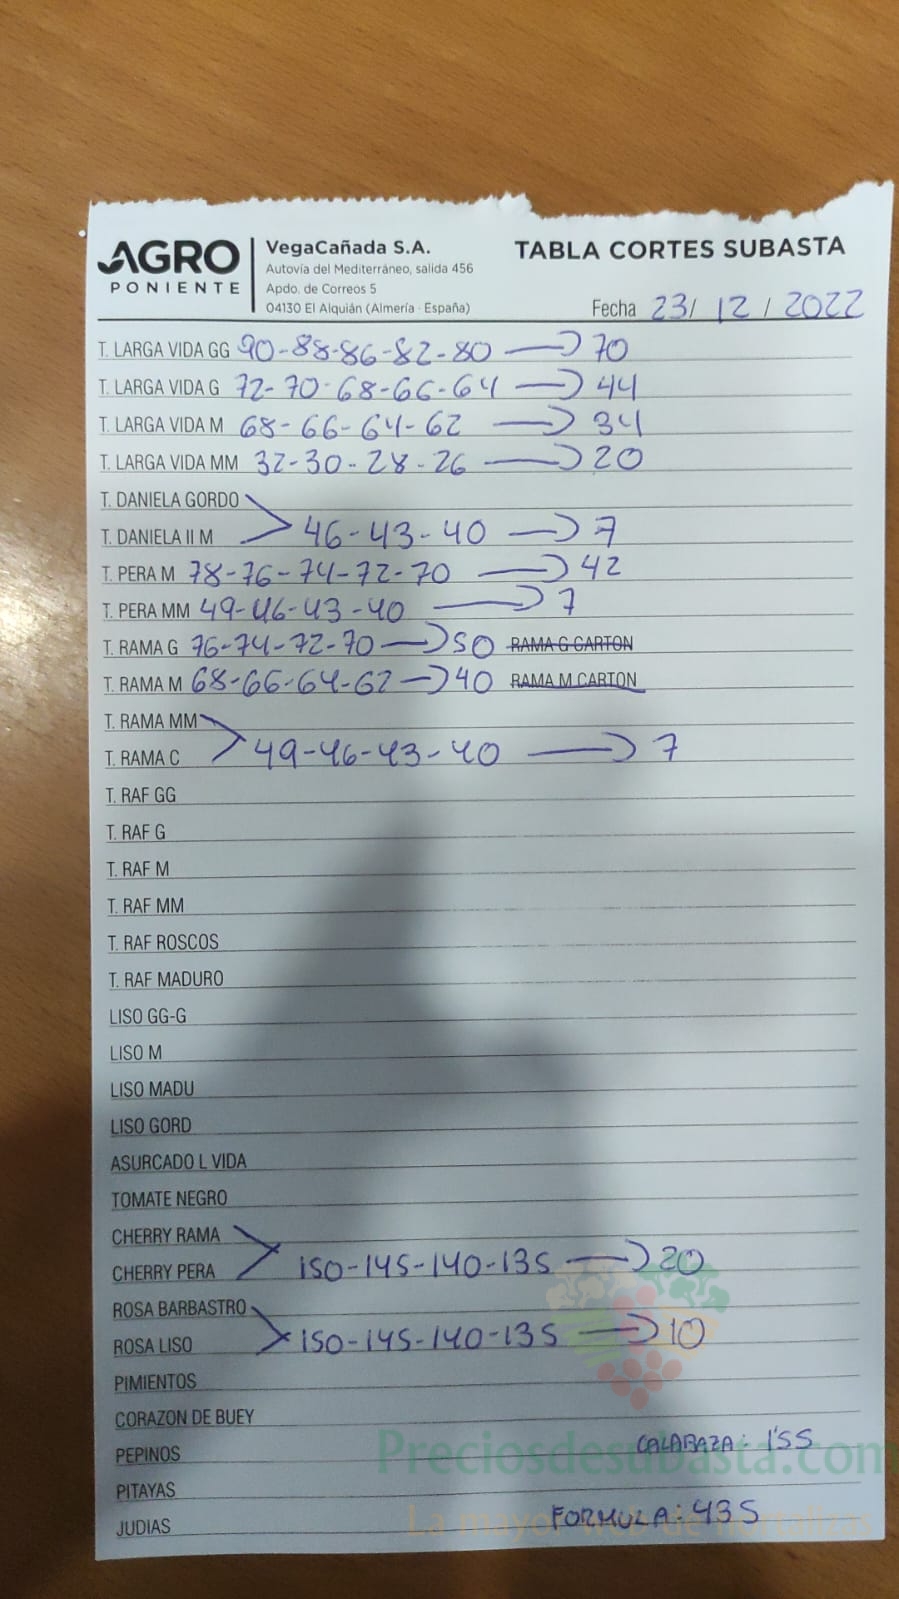 AGRO PONIENTE
VegaCañada S.A.
Autovía del Mediterráneo, salida 456
Apdo. de Correos 5
04130 El Alquián (Almería · España)
TABLA CORTES SUBASTA
Fecha 23/ 12 / 2022
T. LARGA VIDA GG 90-88-86-82-80 → 70
T. LARGA VIDA G 72-70-68-66-64 → 44
T. LARGA VIDA M 68-66-64-62 → 34
T. LARGA VIDA MM 32-30-28-26 → 20
T. DANIELA GORDO
T. DANIELA II M 46-43-40 → 7
T. PERA M 78-76-74-72-70 → 42
T. PERA MM 49-46-43-40 → 7
T. RAMA G 76-74-72-70 → 50 RAMA G CARTON
T. RAMA M 68-66-64-62 → 40 RAMA M CARTON
T. RAMA MM
T. RAMA C 49-46-43-40 → 7
T. RAF GG
T. RAF G
T. RAF M
T. RAF MM
T. RAF ROSCOS
T. RAF MADURO
LISO GG-G
LISO M
LISO MADU
LISO GORD
ASURCADO L VIDA
TOMATE NEGRO
CHERRY RAMA
CHERRY PERA 150-145-140-135 → 20
ROSA BARBASTRO
ROSA LISO 150-145-140-135 → 10
PIMIENTOS
CORAZON DE BUEY
PEPINOS CALABAZA: 1'55
Preciosdesubasta.com
PITAYAS
JUDIAS FORMULA: 435
La mayor